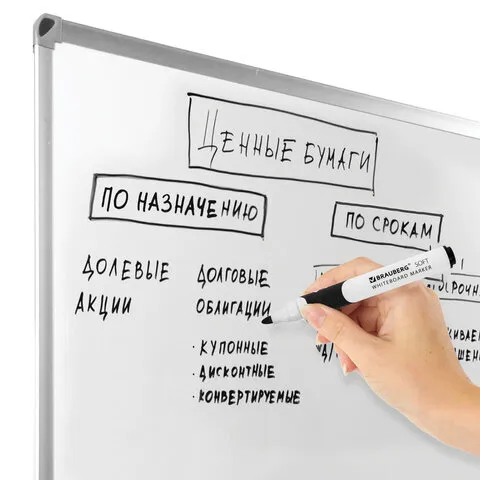 ЦЕННЫЕ БУМАГИ
ПО НАЗНАЧЕНИЮ
ПО СРОКАМ
ДОЛЕВЫЕ
АКЦИИ
ДОЛГОВЫЕ
ОБЛИГАЦИИ
· КУПОННЫЕ
· ДИСКОНТНЫЕ
· КОНВЕРТИРУЕМЫЕ
BRAUBERG SOFT
WHITEBOARD MARKER